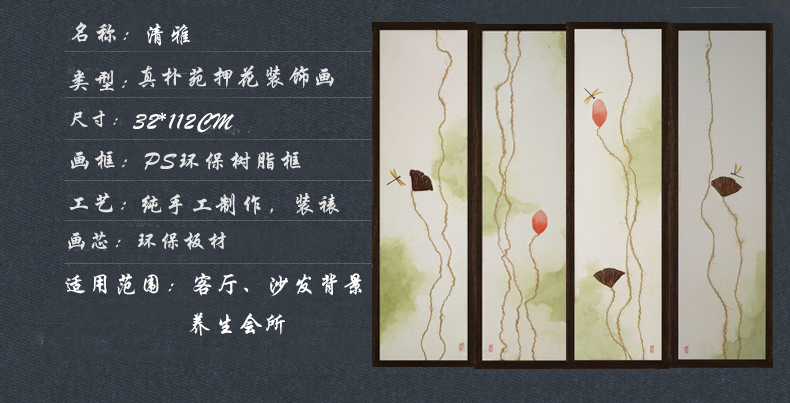 名称：清雅
类型：真朴苑押花装饰画
尺寸：32*112CM
画框：PS环保树脂框
工艺：纯手工制作，装裱
画芯：环保板材
适用范围：客厅、沙发背景
养生会所